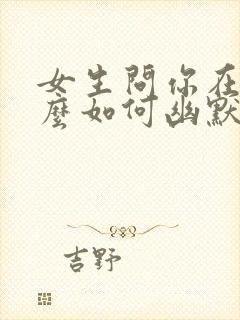 女生問你在
麼如何幽默
吉野